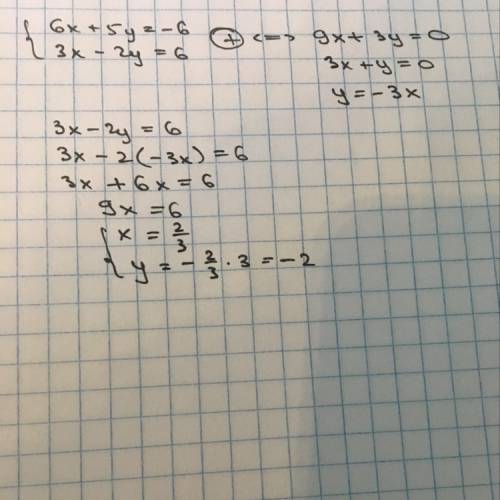 { 6x + 5y = -6
3x - 2y = 6 (+) <=> 9x + 3y = 0
3x + y = 0
y = -3x
3x - 2y = 6
3x - 2(-3x) = 6
3x + 6x = 6
9x = 6
{ x = 2/3
y = - 2/3 · 3 = -2